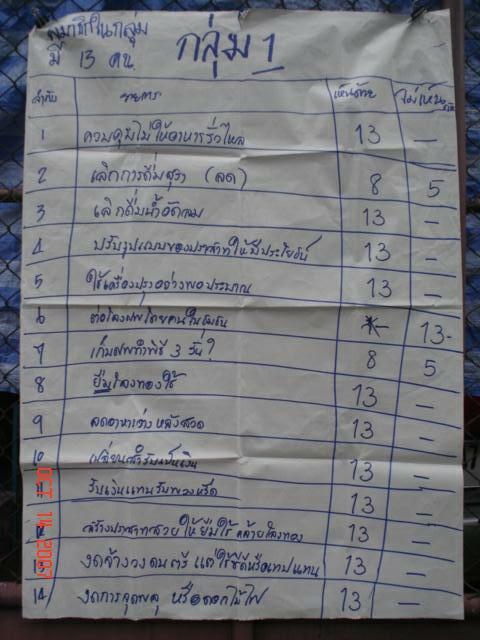 สมาชิกในกลุ่ม
มี 13 คน
กลุ่ม 1
ลำดับ รายการ เห็นด้วย ไม่เห็นด้วย
1 ควบคุมไม่ให้อาหารรั่วไหล 13 –
2 เลิกการดื่มสุรา (ลด) 8 5
3 เลิกดื่มน้ำอัดลม 13 –
4 ปรับรูปแบบของปราสาทให้มีประโยชน์ 13 –
5 ใช้เครื่องปรุงอย่างพอประมาณ 13 –
6 ต่อโลงศพโดยคนในชุมชน 13-
7 เก็บศพทำพิธี 3 วัน? 8 5
8 ยืมโลงทองใช้ 13 –
9 ลดอาหารว่างหลังสวด 13 –
10 เปลี่ยนสำรับเป็นเงิน 13 –
11 รับเงินแทนรับพวงหรีด 13 –
12 สร้างปราสาทสวยให้ยืมใช้คล้ายโลงทอง 13 –
13 งดจ้างวงดนตรี แต่ใช้ซีดีหรือเทปแทน 13 –
14 งดการจุดพลุ หรือดอกไม้ไฟ 13 –
OCT 14 2007